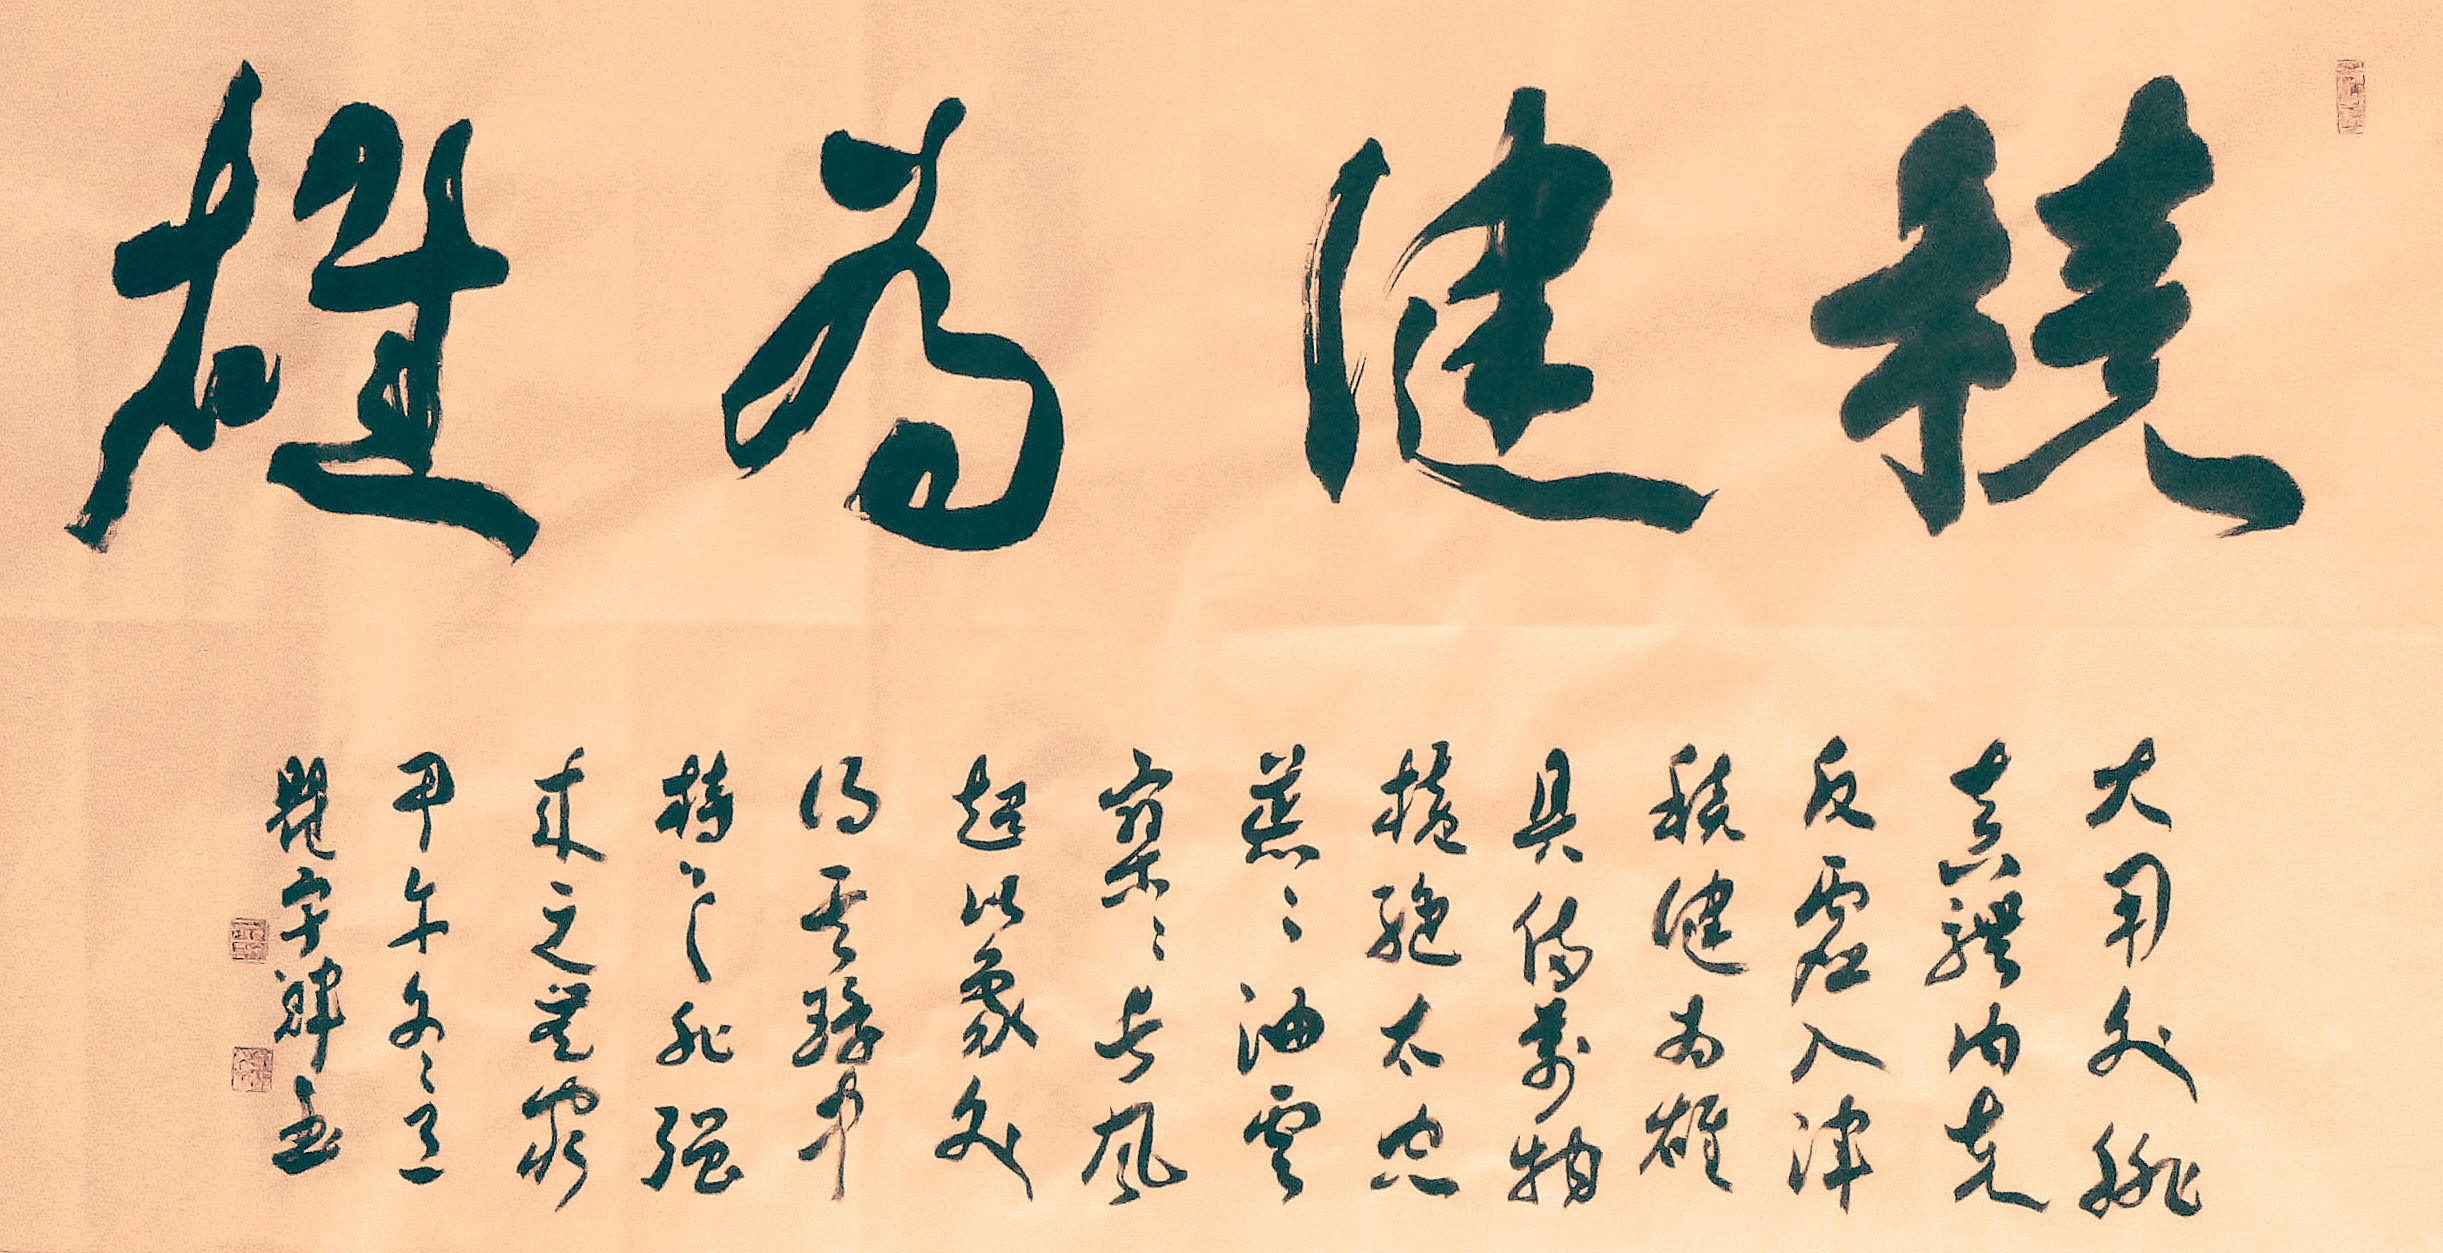 積健為雄
大用外腓
真體內充
反虛入渾
積健為雄
具備萬物
橫絕太空
荒〻油雲
寥〻長風
超以象外
得其環中
持之非強
來之無窮
甲午冬
宇輝書